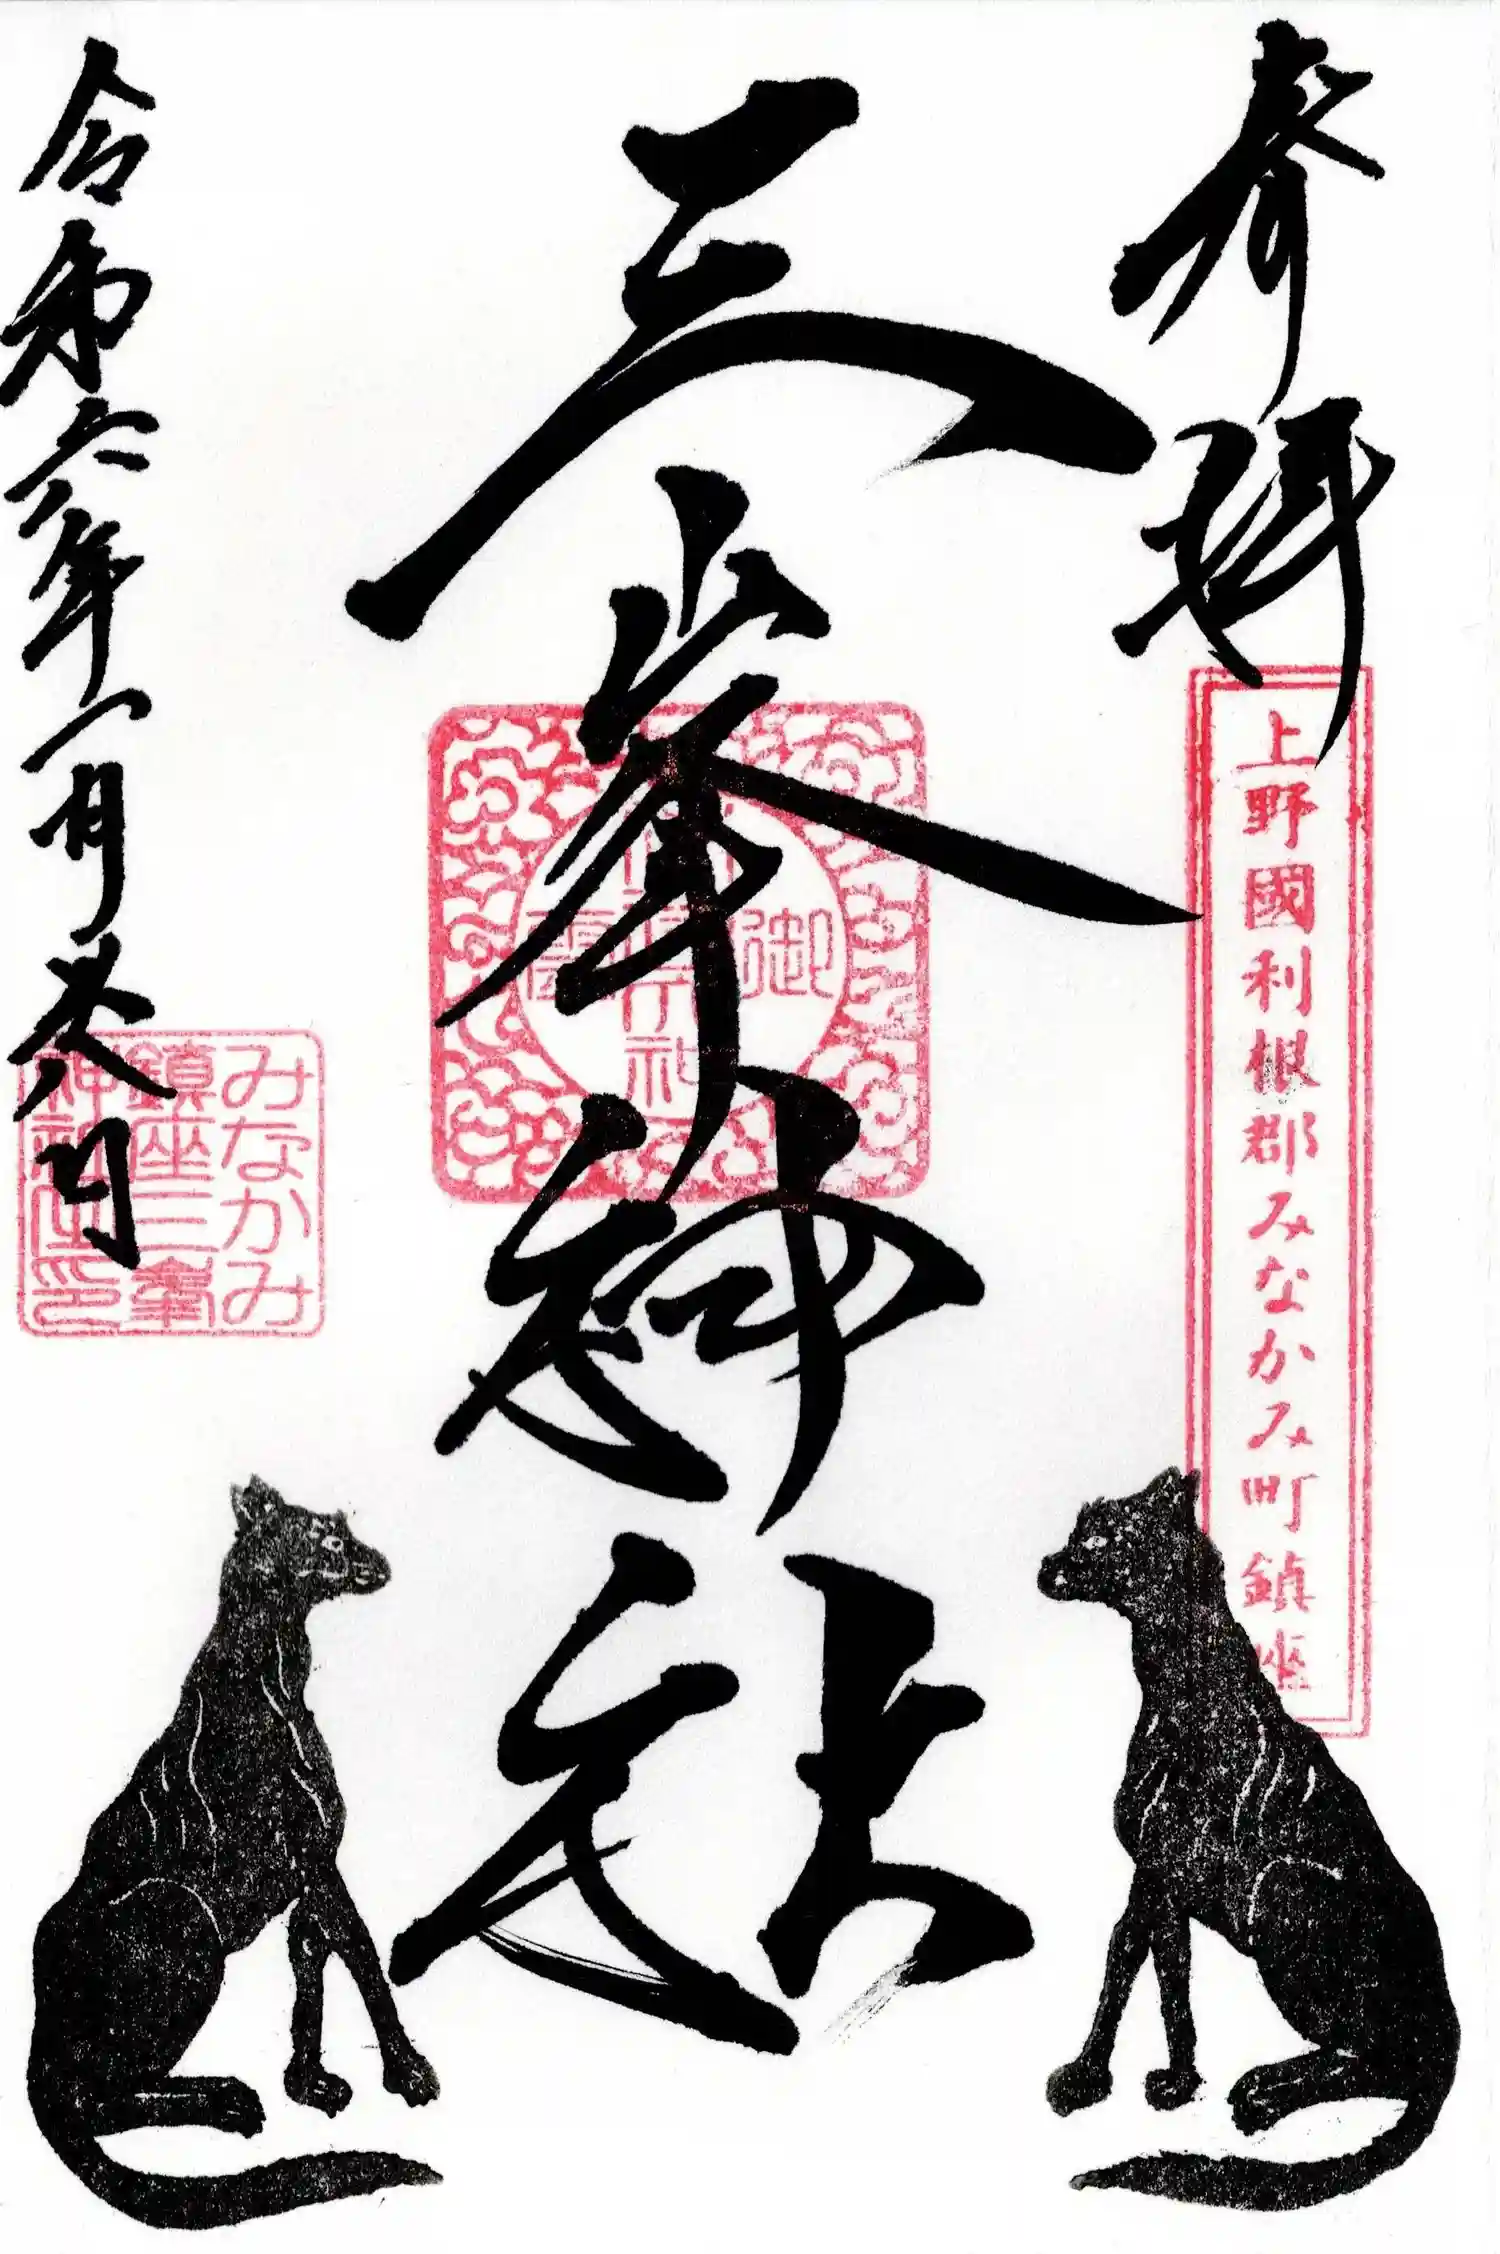 奉拝
上野國利根郡みなかみ町鎮座
三峯神社
御
令和六年一月廿八日
みなかみ
鎮座三峯
神社之印